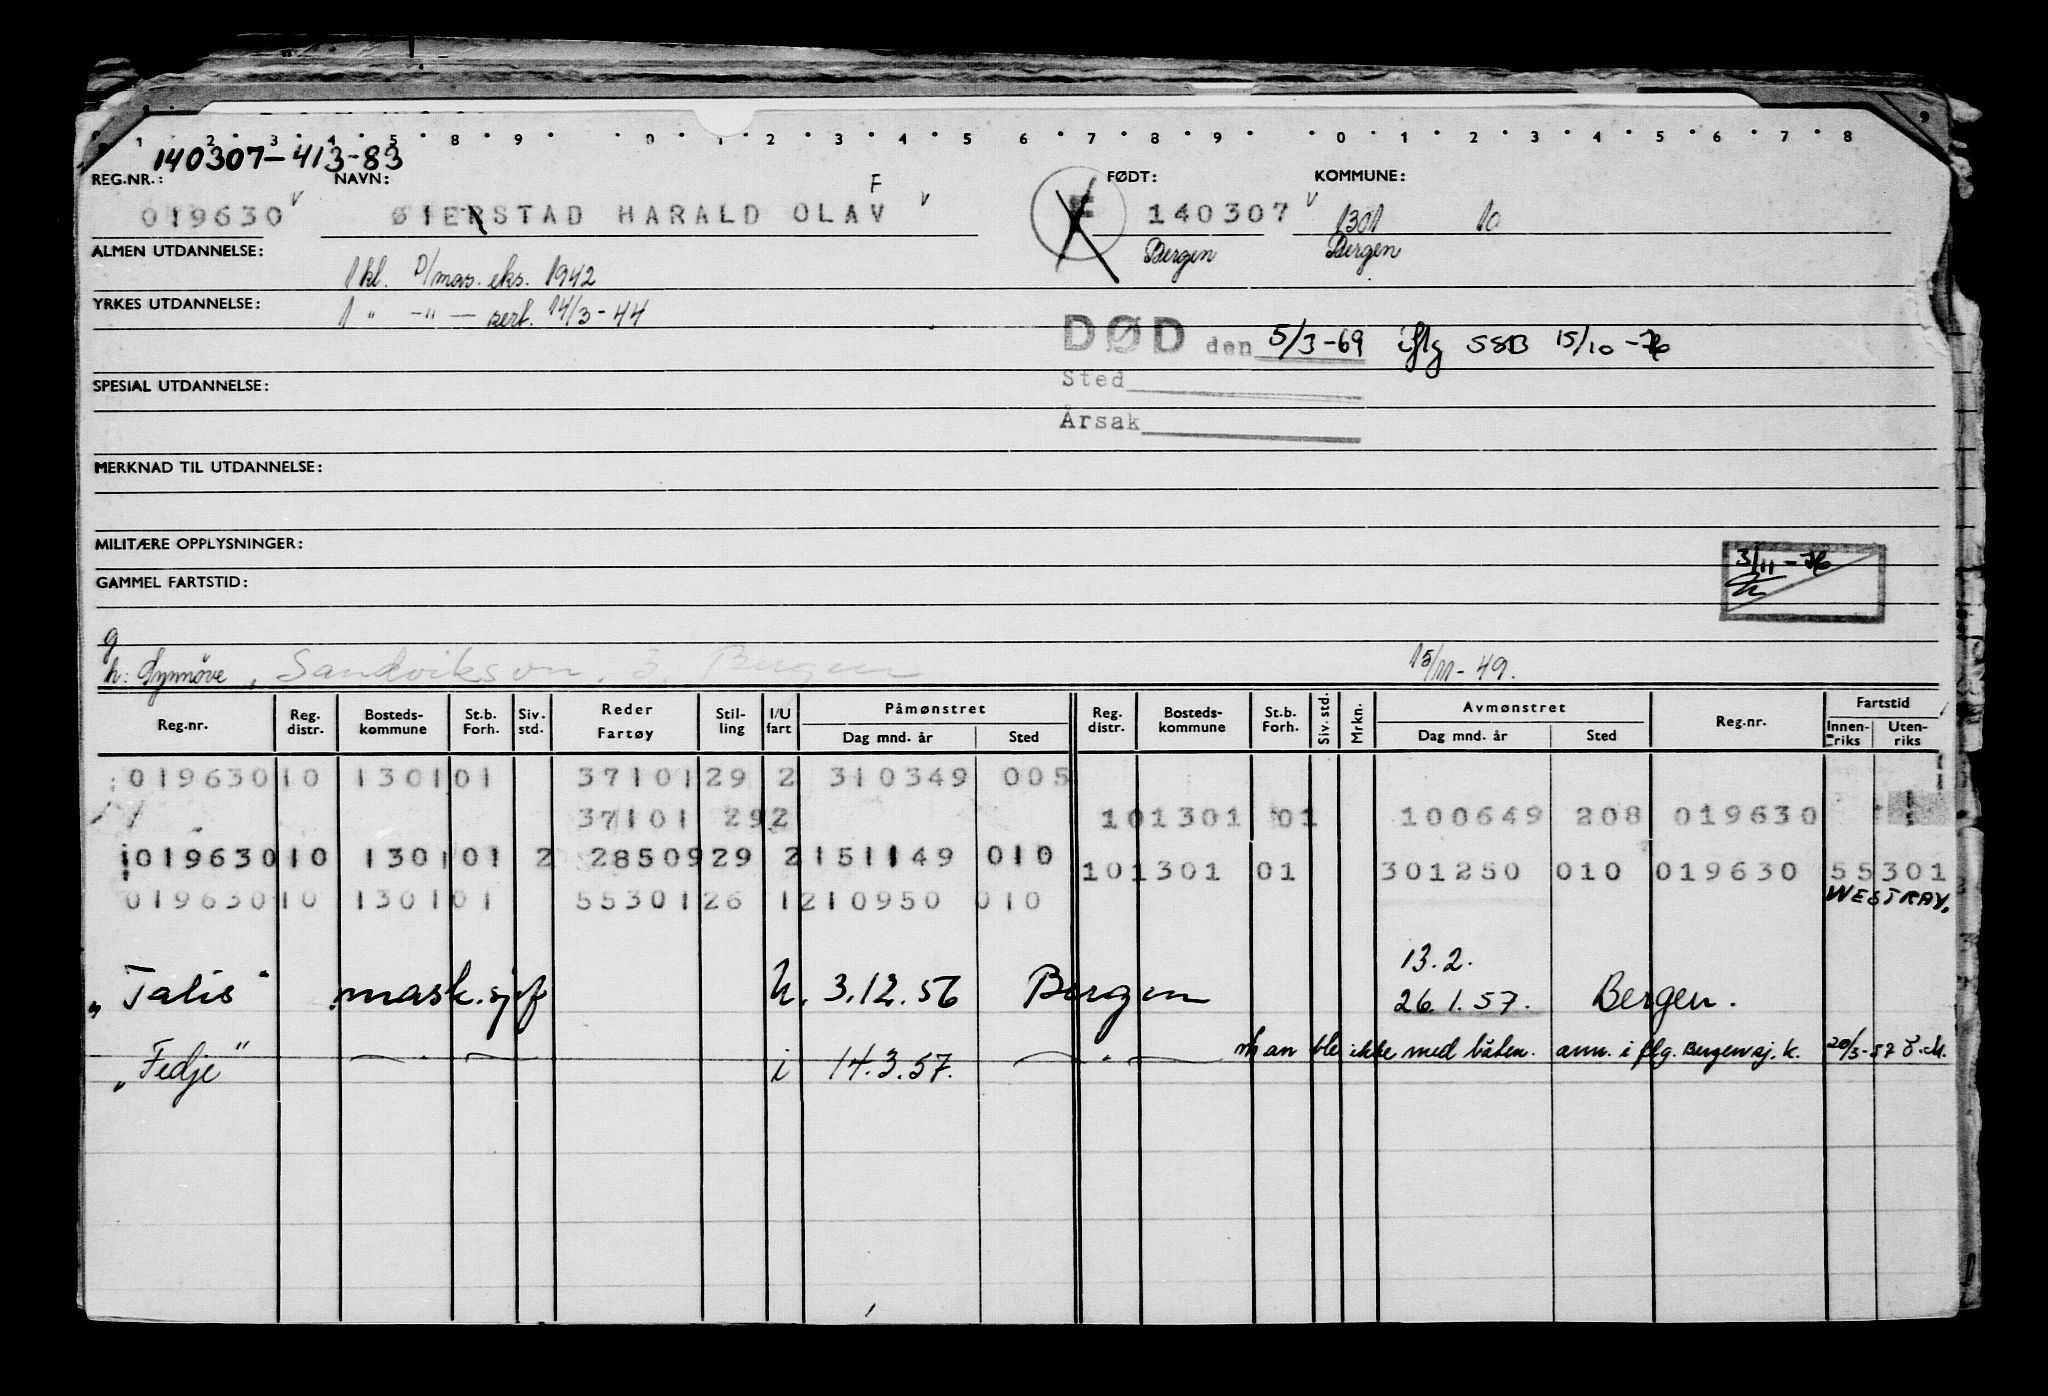 1 2 3 4 5 8 9 0 1 2 3 4 5 6 7 8 9 0 1 2 3 4 5 6 7 8 9
140307-413-83
REG.NR.: NAVN: F FØDT: KOMMUNE:
019630 v ØIERSTAD HARALD OLAV v E 140307 v 1301 10
Bergen Bergen
ALMEN UTDANNELSE: 1 kl. D/mas. eks. 1942
YRKES UTDANNELSE: 1 " -"- sert. 14/3-44
DØD den 5/3-69 iflg SSB 15/10-76
SPESIAL UTDANNELSE: Sted
Årsak
MERKNAD TIL UTDANNELSE:
MILITÆRE OPPLYSNINGER:
3/11-76
GAMMEL FARTSTID:
g
h: Synnöve, Sandviksvn. 5, Bergen 15/11-49.
Reg.nr. Reg. distr. Bosteds-kommune St.b. Forh. Siv. std. Reder Fartøy Stil-ling I/U fart Påmønstret Dag mnd. år Sted Reg. distr. Bosteds-kommune St.b. Forh. Siv. std. Mrkn. Avmønstret Dag mnd. år Sted Reg.nr. Fartstid Innen-riks Uten-riks
019630 10 1301 01 37101 29 2 310349 005
37101 29 2 10 1301 01 100649 208 019630
019630 10 1301 01 2 28509 29 2 151149 010 10 1301 01 301250 010 019630 55301
019630 10 1301 01 55301 26 1 210950 010 WESTRAY.
13.2.
"Talis" mask.sjef u. 3.12.56 Bergen 26.1.57. Bergen.
"Fedje" — " — i 14.3.57. — " — man ble ikke med båten. ann. i flg. Bergen sj. k. 20/3-57